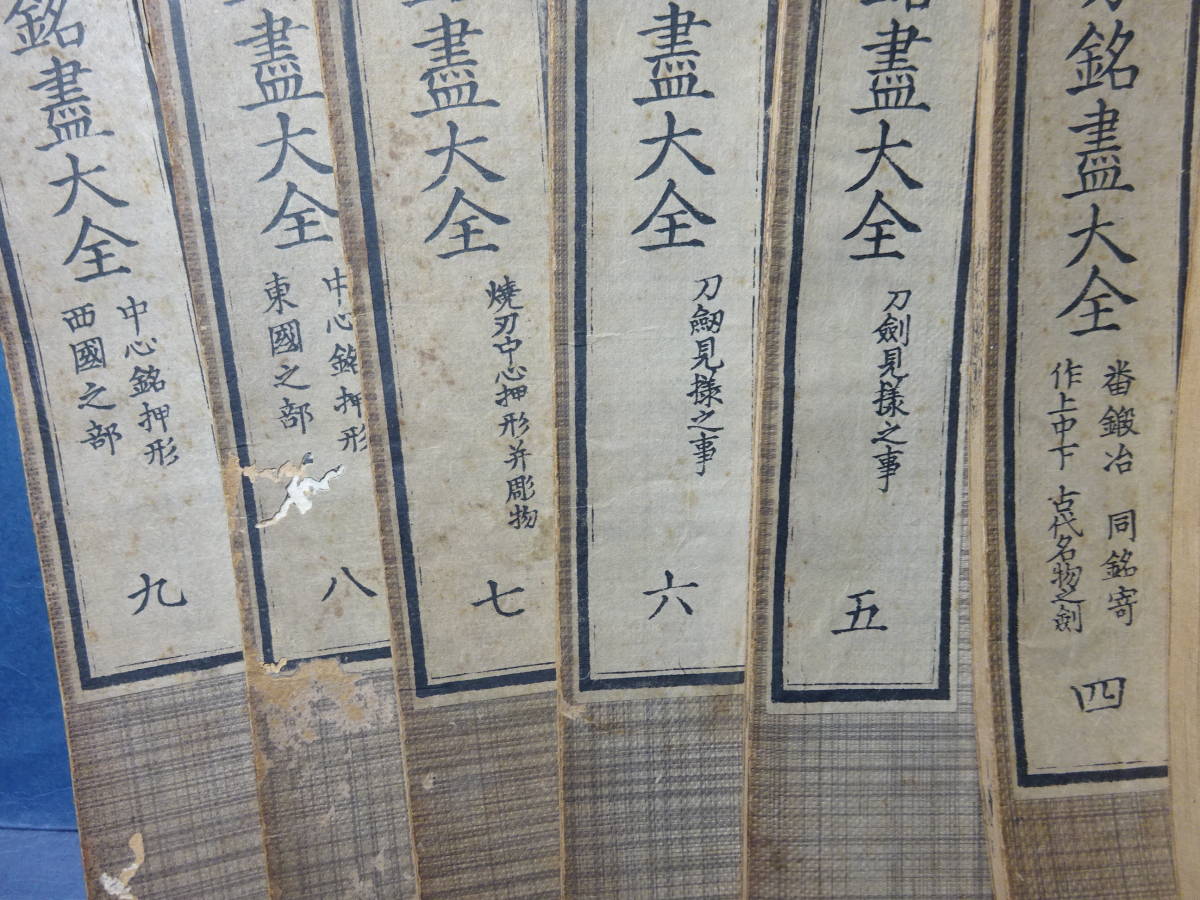 銘盡大全
番鍛冶 同銘寄
作上中下 古代名物之劍
四
盡大全
刀劍見様之事
五
盡大全
刀劔見様之事
六
盡大全
燒刃中心押形并彫物
七
盡大全
中心銘押形
東國之部
八
銘盡大全
中心銘押形
西國之部
九